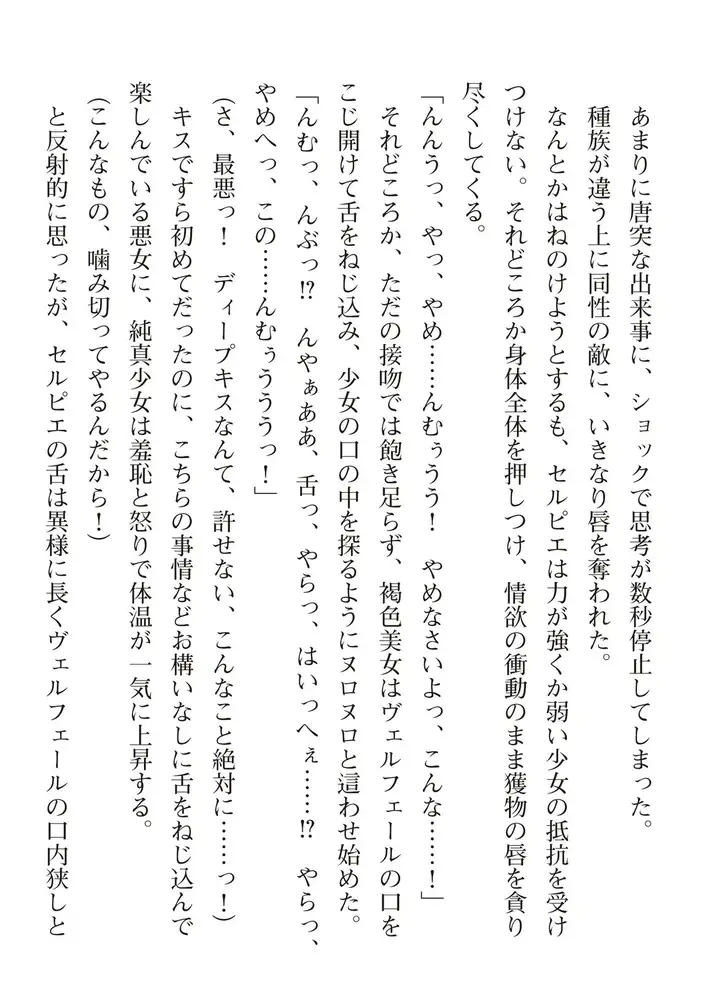 あまりに唐突な出来事に、ショックで思考が数秒停止してしまった。
種族が違う上に同性の敵に、いきなり唇を奪われた。
なんとかはねのけようとするも、セルピエは力が強くか弱い少女の抵抗を受け
つけない。それどころか身体全体を押しつけ、情欲の衝動のまま獲物の唇を貪り
尽くしてくる。
「んんうっ、やっ、やめ……んむぅうう！　やめなさいよっ、こんな……！」
それどころか、ただの接吻では飽き足らず、褐色美女はヴェルフェールの口を
こじ開けて舌をねじ込み、少女の口の中を探るようにヌロヌロと這わせ始めた。
「んむっ、んぶっ!?　んやぁああ、舌っ、やらっ、はいっへぇ……!?　やらっ、
やめへっ、この……んむぅうううっ！」
(さ、最悪っ！　ディープキスなんて、許せない、こんなこと絶対に……っ！)
キスですら初めてだったのに、こちらの事情などお構いなしに舌をねじ込んで
楽しんでいる悪女に、純真少女は羞恥と怒りで体温が一気に上昇する。
(こんなもの、噛み切ってやるんだから！)
と反射的に思ったが、セルピエの舌は異様に長くヴェルフェールの口内狭しと